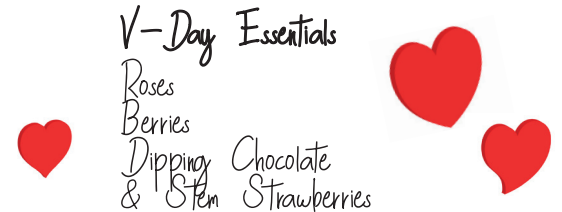 V-Day Essentials
Roses
Berries
Dipping Chocolate
& Stem Strawberries